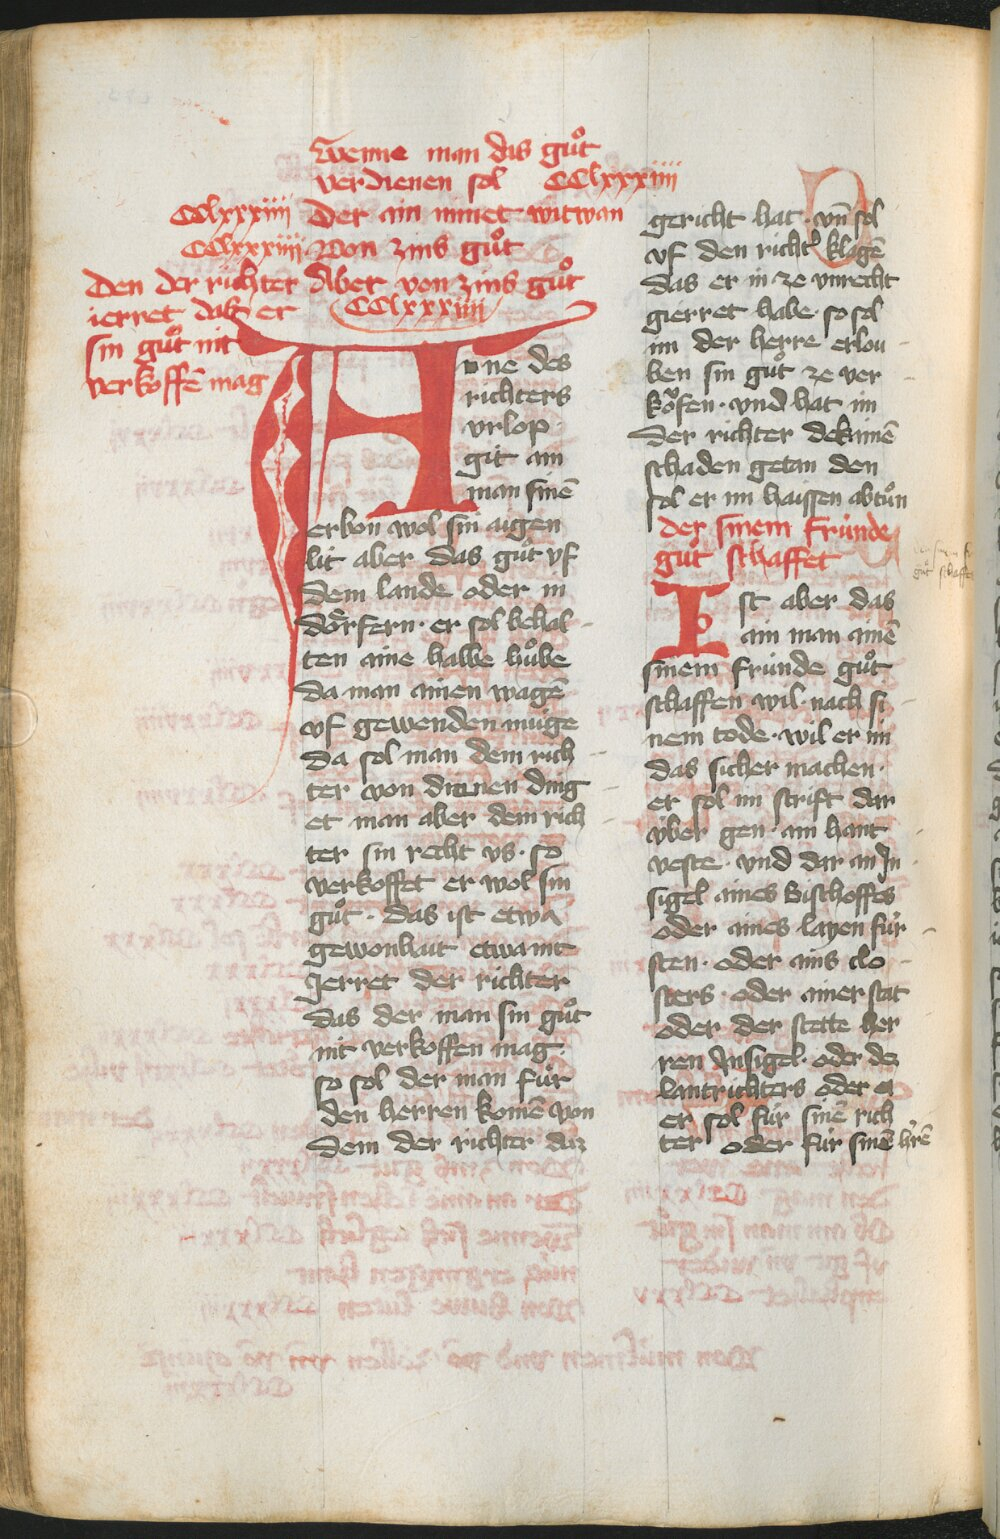 Wenne man das guͦt
verdienen sol CClxxxiiii
CClxxxiiii Der ain nimet witwan
CClxxxiiii Von zins guͦt
Den der richter Aber von zins guͦt
ierret daz er CClxxxiiii
sin guͦt nit
verkoffē mag
Ane des
richters
vrlop
git ain
man sinē
erbon wol sin aigen
lit aber das guͦt vf
dem lande oder in
doͤrfern · er sol behal
ten aine halbe huͦbe
da man ainen wagē
vf gewenden muge
da sol man dem rich
ter von dienen ding
et man aber dem rich
ter sin recht vs · so
verkoffet er wol sin
guͦt · das ist etwa
gewonhait etwa nit
Jerret der richter
das der man sin guͦt
nit verkoffen mag ·
so sol der man fuͤr
den herren komē von
dem der richter daz
gericht hat · vn̄ sol
vf den richtˀ klagē
das er in ze vnrecht
gierret habe · so sol
im der herre erlou
ben sin guͦt ze ver
koͧfen · vnd hat im
der richter dekainē
schaden getan den
sol er im haissen abtuͦn
der sinem fründe
guͦt schaffet
Ist aber das
ain man ainē
sinem fründe guͦt
schaffen wil · nach si
nem tode · wil er im
das sicher machen ·
er sol im scrift dar
v̈ber gen · ain hant
veste · vnd dar an In
sigel aines Bischoffes
oder aines layen für
sten · oder ains clo
sters · oder ainer stat
oder der stette her
ren Insigel · oder dez
lantrichters oder
er sol für sinē rich
ter oder für sinē hˀrē
guͦt schaffet